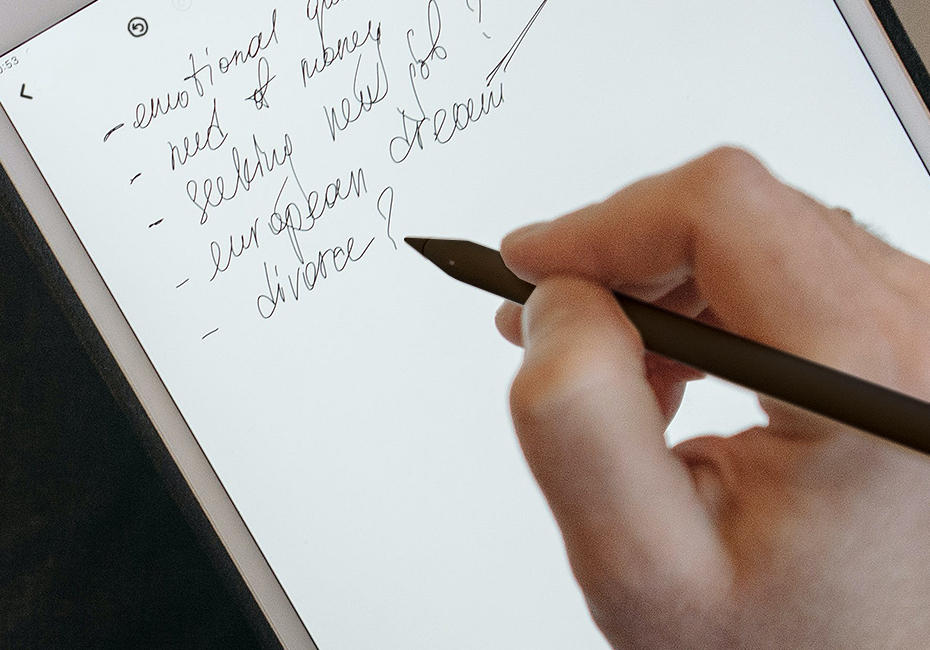 :53
- emotional
- need of money
- seeking new job ?
- european dream
- divorce ?